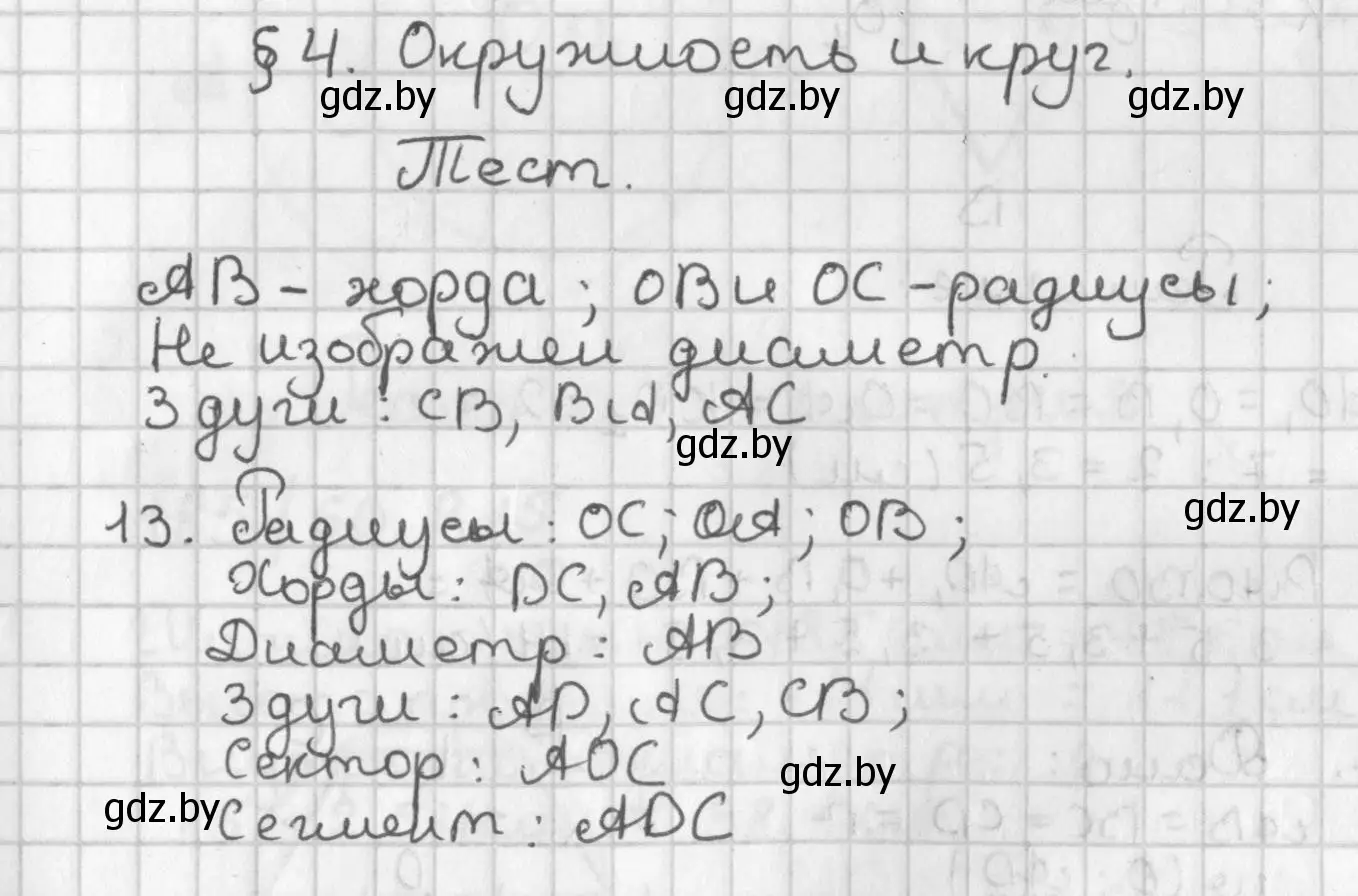 § 4. Окружность и круг.
gdz.by gdz.by gdz.by
Тест.
AB - хорда ; OB и OC - радиусы ;
Не изображен диаметр.
3 дуги : CB, BA, AC
gdz.by
13. Радиусы : OC; OA; OB ;
gdz.by
Хорды : DC, AB ;
Диаметр : AB
3 дуги : AD, AC, CB ;
Сектор : AOC
gdz.by
gdz.by
Сегмент : ADC